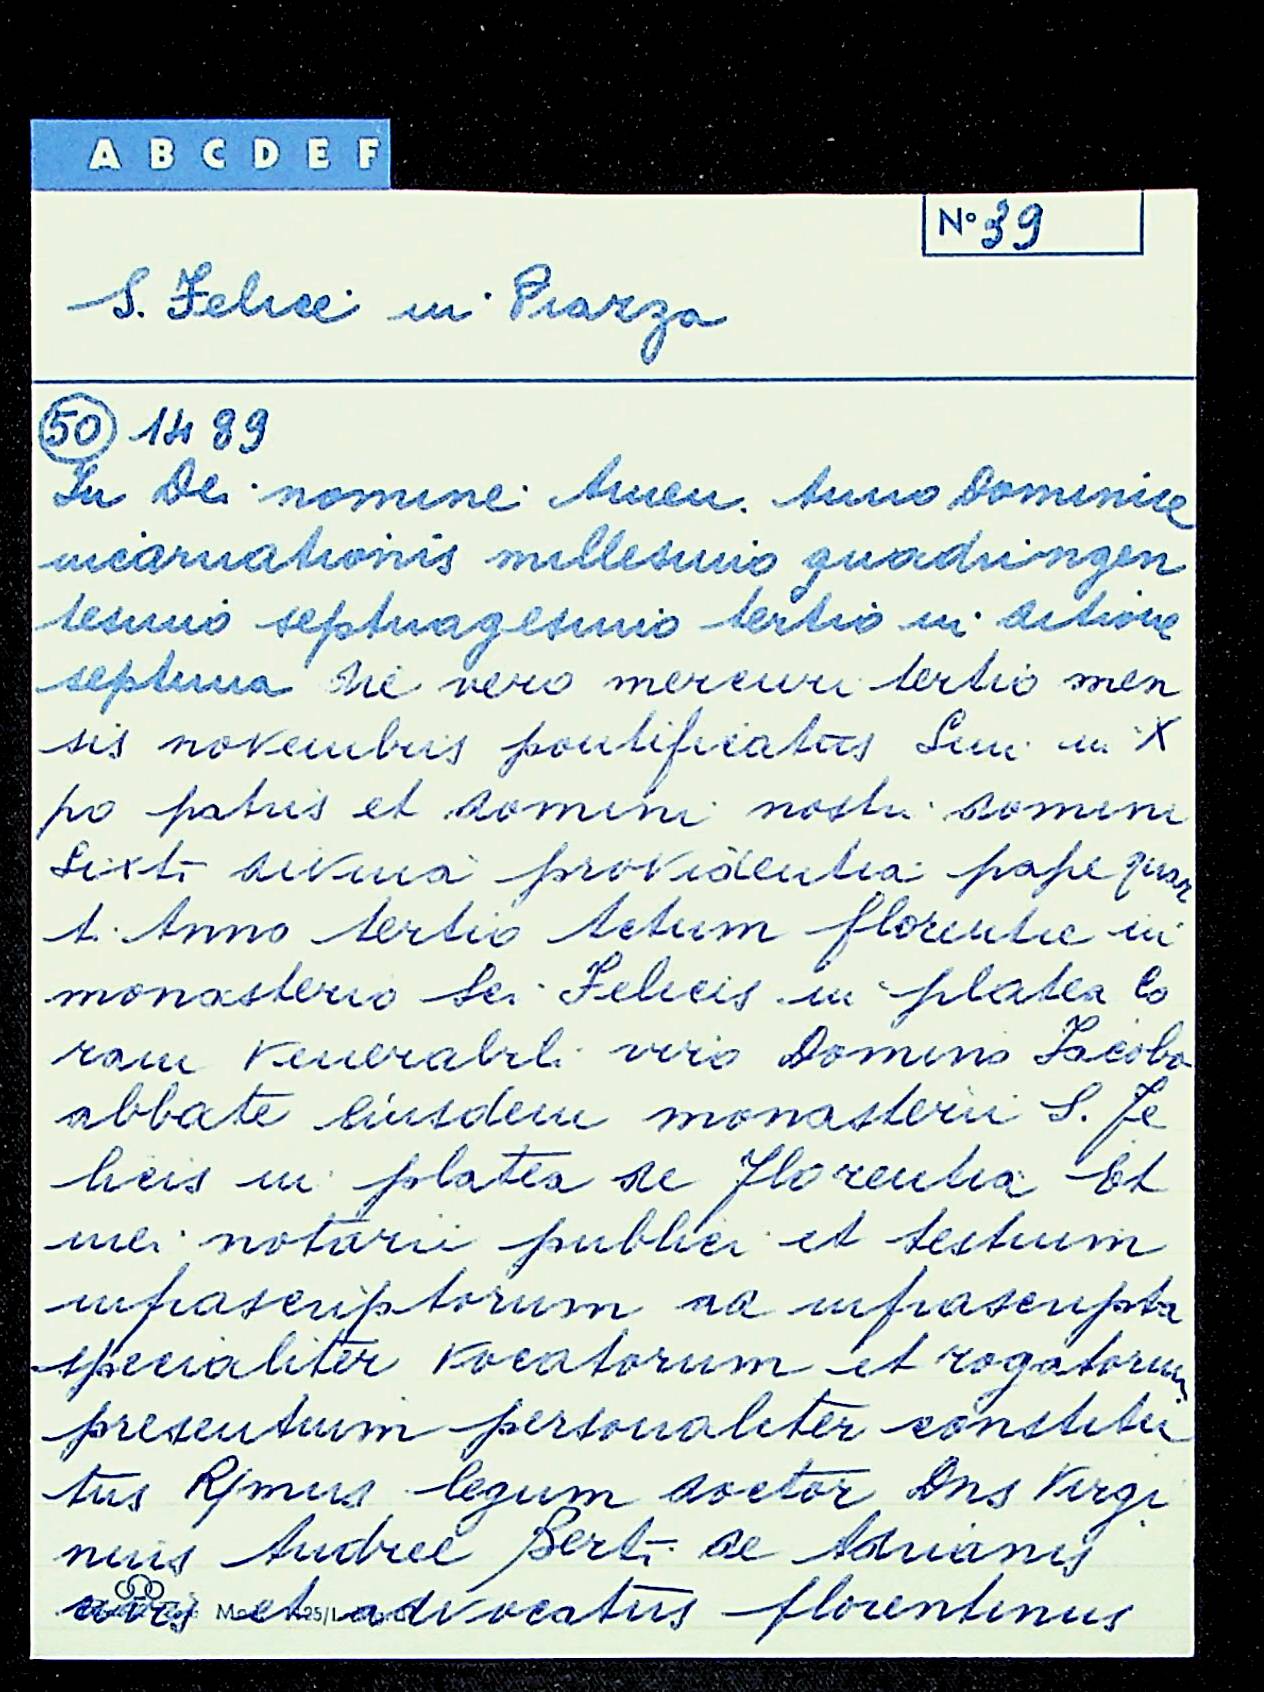 A B C D E F
N° 39
S. Felice in Piazza
50 1489
In Dei nomine Amen. Anno Dominice
incarnationis millesimo quadringen
tesimo septuagesimo tertio in dictione
septima die vero mercurii tertio men
sis novembris pontificatus Smi in X
po patris et domini nostri domini
Sixti divina providentia pape quar
ti Anno tertio Actum florentie in
monasterio Sci Felicis in platea Co
ram venerabili viro Domino Jacobo
abbate eiusdem monasterii S. Fe
licis in platea de Florentia Et
mei notarii publici et testium
infrascriptorum ad infrascripta
specialiter vocatorum et rogatorum
presentium personaliter constitu
tus legum doctor Dns Virgi
nius Andree Berti de Adrianis
civis et advocatus florentinus